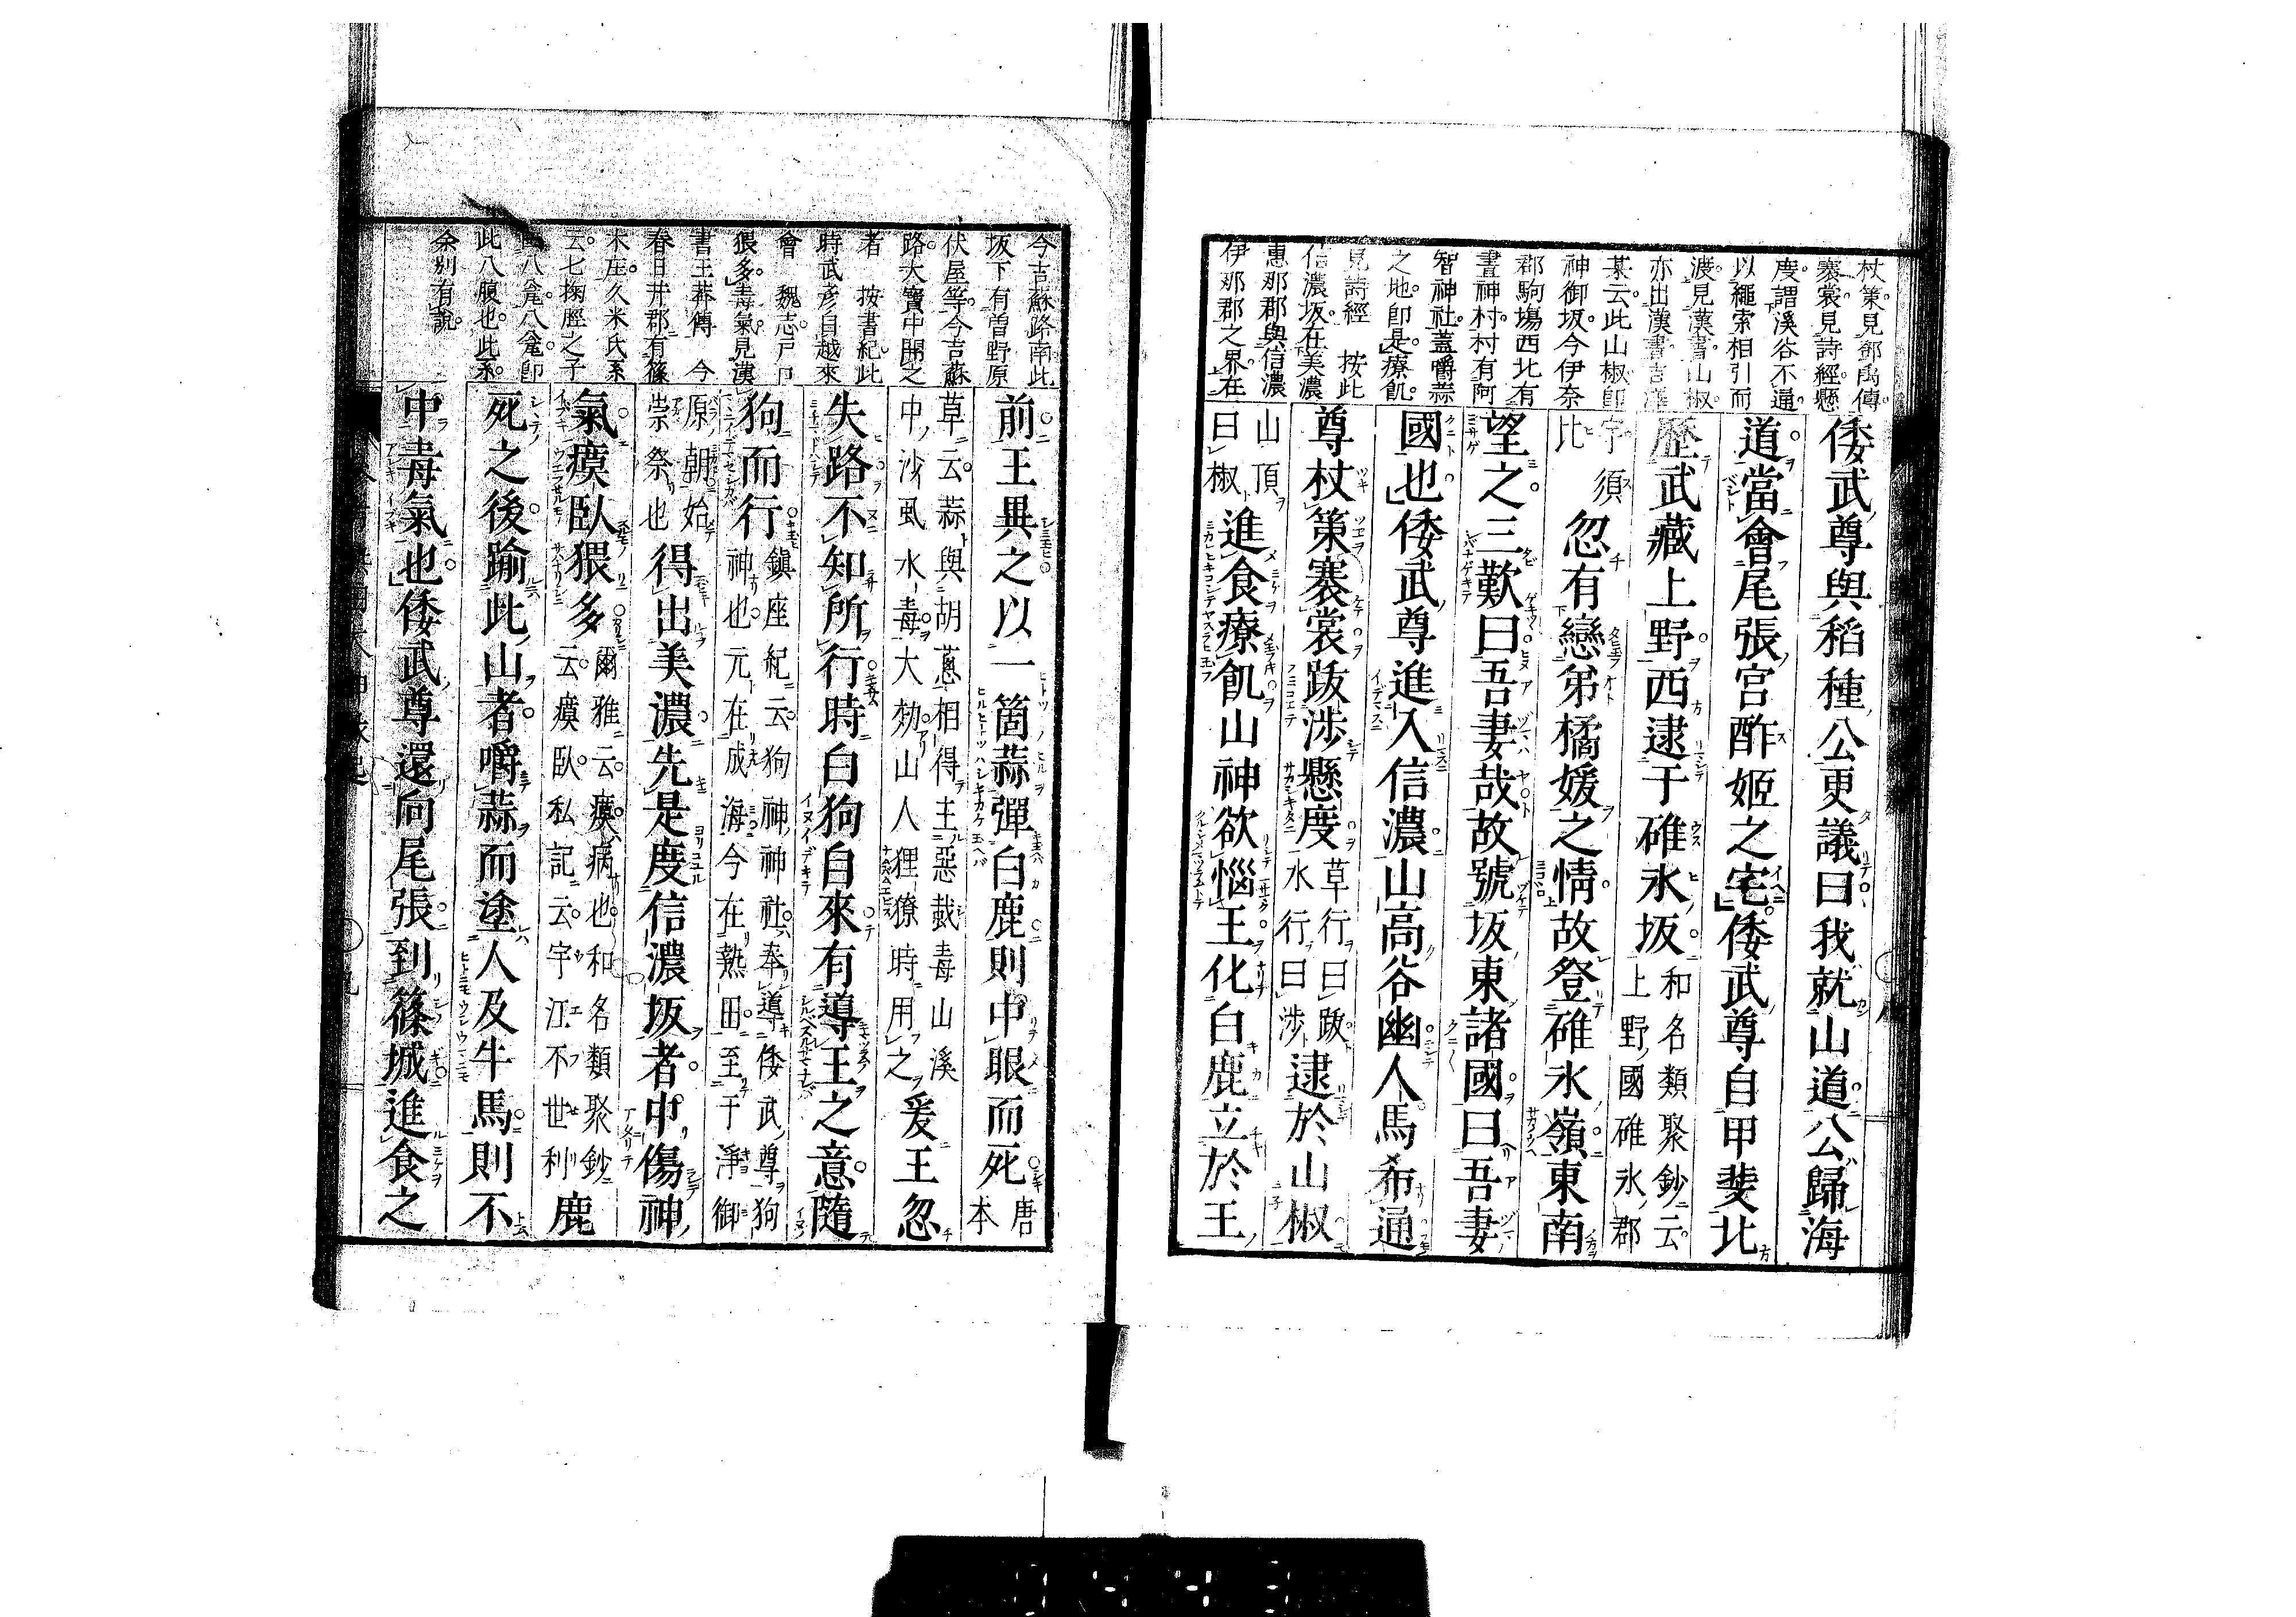 杖策見鄧禹傳
褰裳見詩經懸
度謂溪谷不通
以繩索相引而
渡見漢書山椒
亦出漢書
某云此山椒即
神御坂今伊奈
郡駒塲西北有
晝神村村有阿
智神社蓋嚼蒜
之地即是療飢
見詩經 按此
信濃坂在美濃
惠那郡與信濃
伊那郡之界在
倭武尊與稻種公更議曰我就山道公歸海
道當會尾張宮酢姬之宅倭武尊自甲斐北
歷武藏上野西逮于碓氷坂
和名類聚鈔云
上野國碓氷郡
宇須
比
忽有戀弟橘媛之情故登碓氷嶺東南
望之三歎曰吾妻哉故號坂東諸國曰吾妻
國也倭武尊進入信濃山高谷幽人馬希通
尊杖策褰裳跋涉懸度
草行曰跋
水行曰涉
逮於山椒
山頂
曰椒
進食療飢山神欲惱王化白鹿立於王
今吉蘇路南此
坂下有曽野原
伏屋等今吉蘇
路大寶中開之
者 按書紀此
時武彦自越來
會 魏志戸口
猥多毒氣見漢
書王莽傳 今
春日井郡有篠
木庄久米氏系
云七掬脛之子
八龛八龛即
此八腹也此系
余別有說
前王異之以一箇蒜彈白鹿則中眼而死
唐本
草云蒜與胡蔥相得主惡䖢毒山溪
中沙虱水毒大效山人狸獠時用之
爰王忽
失路不知所行時白狗自來有導王之意隨
狗而行
鎮座紀云狗神神社奉導倭武尊狗
神也元在成海今在熱田至于淨御
原朝始
崇祭也
得出美濃先是度信濃坂者中傷神
氣瘼臥猥多
爾雅云瘼病也和名類聚鈔
云瘼臥私記云宇江不世利
鹿
死之後踰此山者嚼蒜而塗人及牛馬則不
中毒氣也倭武尊還向尾張到篠城進食之